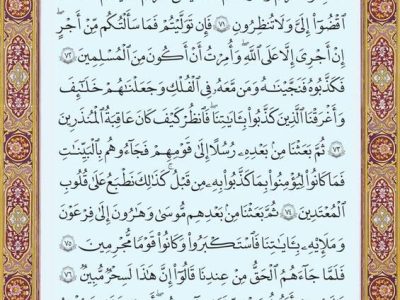 ٱقۡضُوٓاْ إِلَيَّ وَلَا تُنظِرُونِ ٧١ فَإِن تَوَلَّيۡتُمۡ فَمَا سَأَلۡتُكُم مِّنۡ أَجۡرٍۖ
إِنۡ أَجۡرِيَ إِلَّا عَلَى ٱللَّهِۖ وَأُمِرۡتُ أَنۡ أَكُونَ مِنَ ٱلۡمُسۡلِمِينَ ٧٢
فَكَذَّبُوهُ فَنَجَّيۡنَٰهُ وَمَن مَّعَهُۥ فِي ٱلۡفُلۡكِ وَجَعَلۡنَٰهُمۡ خَلَٰٓئِفَ
وَأَغۡرَقۡنَا ٱلَّذِينَ كَذَّبُواْ بِـَٔايَٰتِنَاۖ فَٱنظُرۡ كَيۡفَ كَانَ عَٰقِبَةُ ٱلۡمُنذَرِينَ
٧٣ ثُمَّ بَعَثۡنَا مِنۢ بَعۡدِهِۦ رُسُلًا إِلَىٰ قَوۡمِهِمۡ فَجَآءُوهُم بِٱلۡبَيِّنَٰتِ
فَمَا كَانُواْ لِيُؤۡمِنُواْ بِمَا كَذَّبُواْ بِهِۦ مِن قَبۡلُۚ كَذَٰلِكَ نَطۡبَعُ عَلَىٰ قُلُوبِ
ٱلۡمُعۡتَدِينَ ٧٤ ثُمَّ بَعَثۡنَا مِنۢ بَعۡدِهِم مُّوسَىٰ وَهَٰرُونَ إِلَىٰ فِرۡعَوۡنَ
وَمَلَإِيْهِۦ بِـَٔايَٰتِنَا فَٱسۡتَكۡبَرُواْ وَكَانُواْ قَوۡمٗا مُّجۡرِمِينَ ٧٥
فَلَمَّا جَآءَهُمُ ٱلۡحَقُّ مِنۡ عِندِنَا قَالُوٓاْ إِنَّ هَٰذَا لَسِحۡرٞ مُّبِينٞ ٧٦